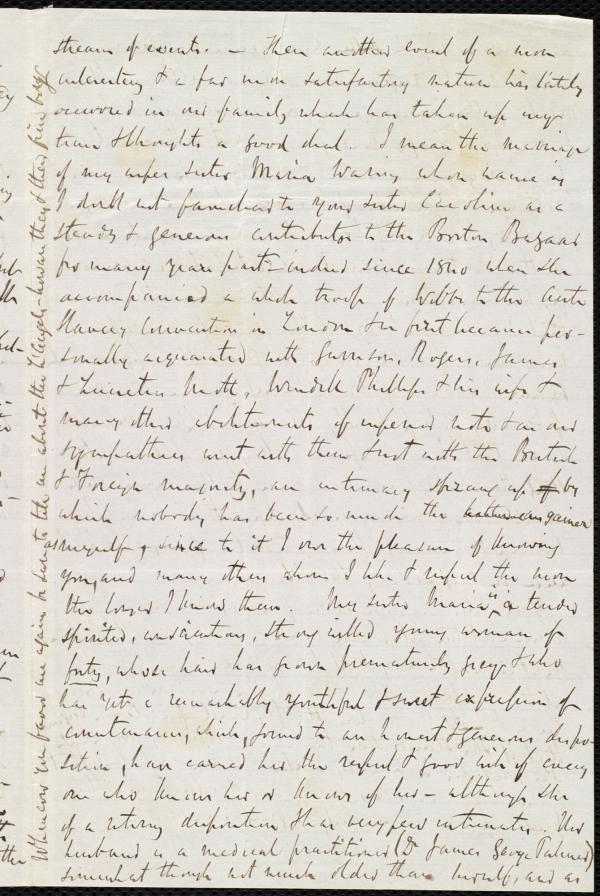 stream of events. — Then another event of a more
interesting & a far more satisfactory nature has lately
occurred in our family which has taken up my
time & thoughts a good deal. I mean the marriage
of my wife's sister Maria Waring whose name is
I doubt not familiar to your sister Caroline as a
steady & generous contributor to the Boston Bazaar
for many years past — indeed since 1840 when she
accompanied a whole troop of Webbs to the Anti
Slavery Convention in London & we first became per-
sonally acquainted with Garrison, Rogers, James
& Lucretia Mott, Wendell Phillips & his wife &
many other abolitionists of inferior note & as our
sympathies went with them & not with the British
& Foreign majority, an intimacy sprang up by
which nobody has been so much the gainer
as myself, since to it I owe the pleasure of knowing
you, and many others whom I like & respect the more
the longer I know them. My sister Maria is a tender
spirited, conscientious, strong willed young woman of
forty, whose hair has grown prematurely grey & who
has yet a remarkably youthful & sweet expression of
countenance, which, joined to an honest & generous dispo-
sition, have earned her the respect & good will of every
one who knows her or knows of her — although she
of a retiring disposition & has very few intimates. Her
husband is a medical practitioner (Dr James George Palmer)
somewhat though not much older than herself, and as
Whenever you favor me again be sure to tell me about the & their fine boy